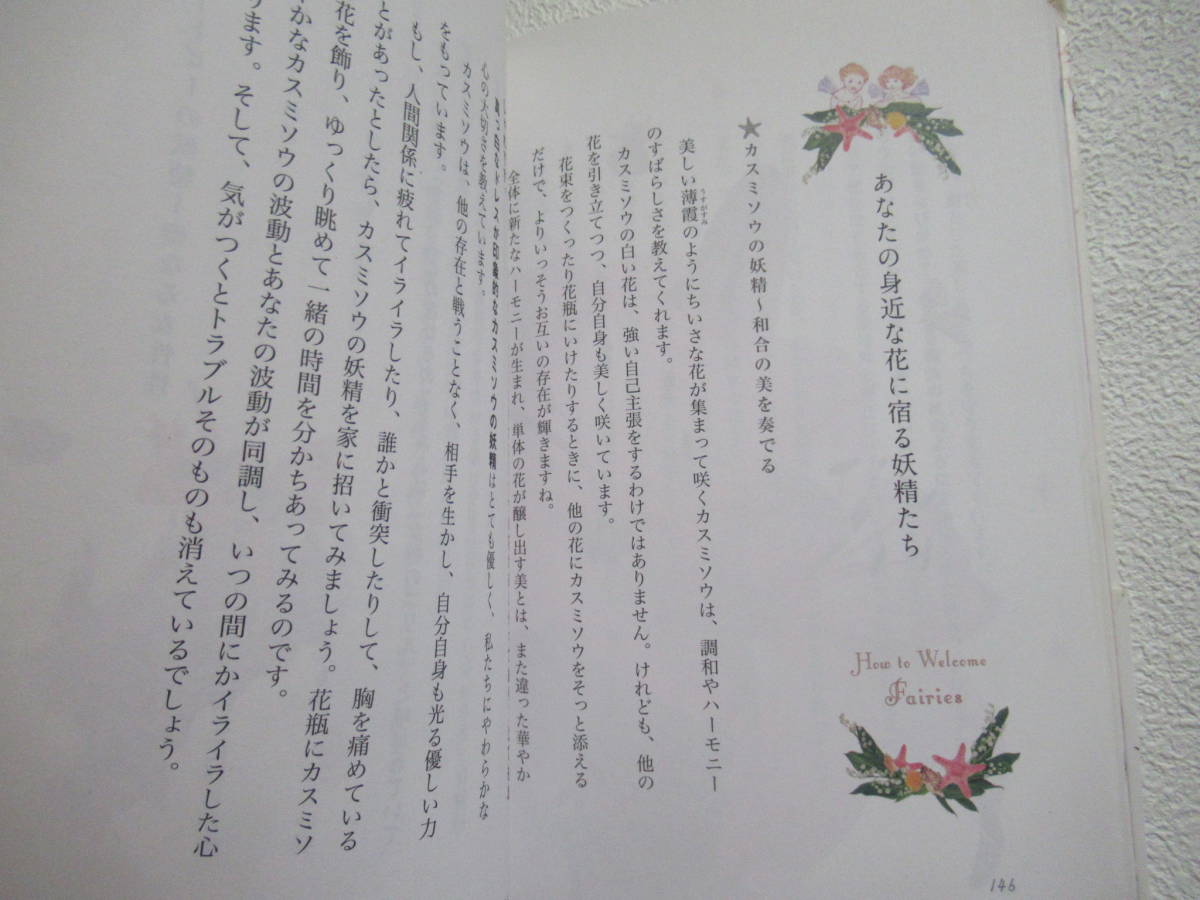 あなたの身近な花に宿る妖精たち
How to Welcome
Fairies
★カスミソウの妖精～和合の美を奏でる
美しい薄霞のようにちいさな花が集まって咲くカスミソウは、調和やハーモニー
うすがすみ
のすばらしさを教えてくれます。
カスミソウの白い花は、強い自己主張をするわけではありません。けれども、他の
花を引き立てつつ、自分自身も美しく咲いています。
花束をつくったり花瓶にいけたりするときに、他の花にカスミソウをそっと添える
だけで、よりいっそうお互いの存在が輝きますね。
全体に新たなハーモニーが生まれ、単体の花が醸し出す美とは、また違った華やか
146
ドレスが印象的なカスミソウの妖精はとても優しく、私たちにやわらかな
心の大切さを教えています。
カスミソウは、他の存在と戦うことなく、相手を生かし、自分自身も光る優しい力
をもっています。
もし、人間関係に疲れてイライラしたり、誰かと衝突したりして、胸を痛めている
とがあったとしたら、カスミソウの妖精を家に招いてみましょう。花瓶にカスミソ
花を飾り、ゆっくり眺めて一緒の時間を分かちあってみるのです。
やかなカスミソウの波動とあなたの波動が同調し、いつの間にかイライラした心
ります。そして、気がつくとトラブルそのものも消えているでしょう。